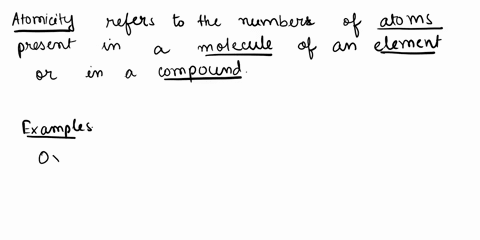 Atomicity refers to the numbers of atoms
present in a molecule of an element
or in a compound.
Examples